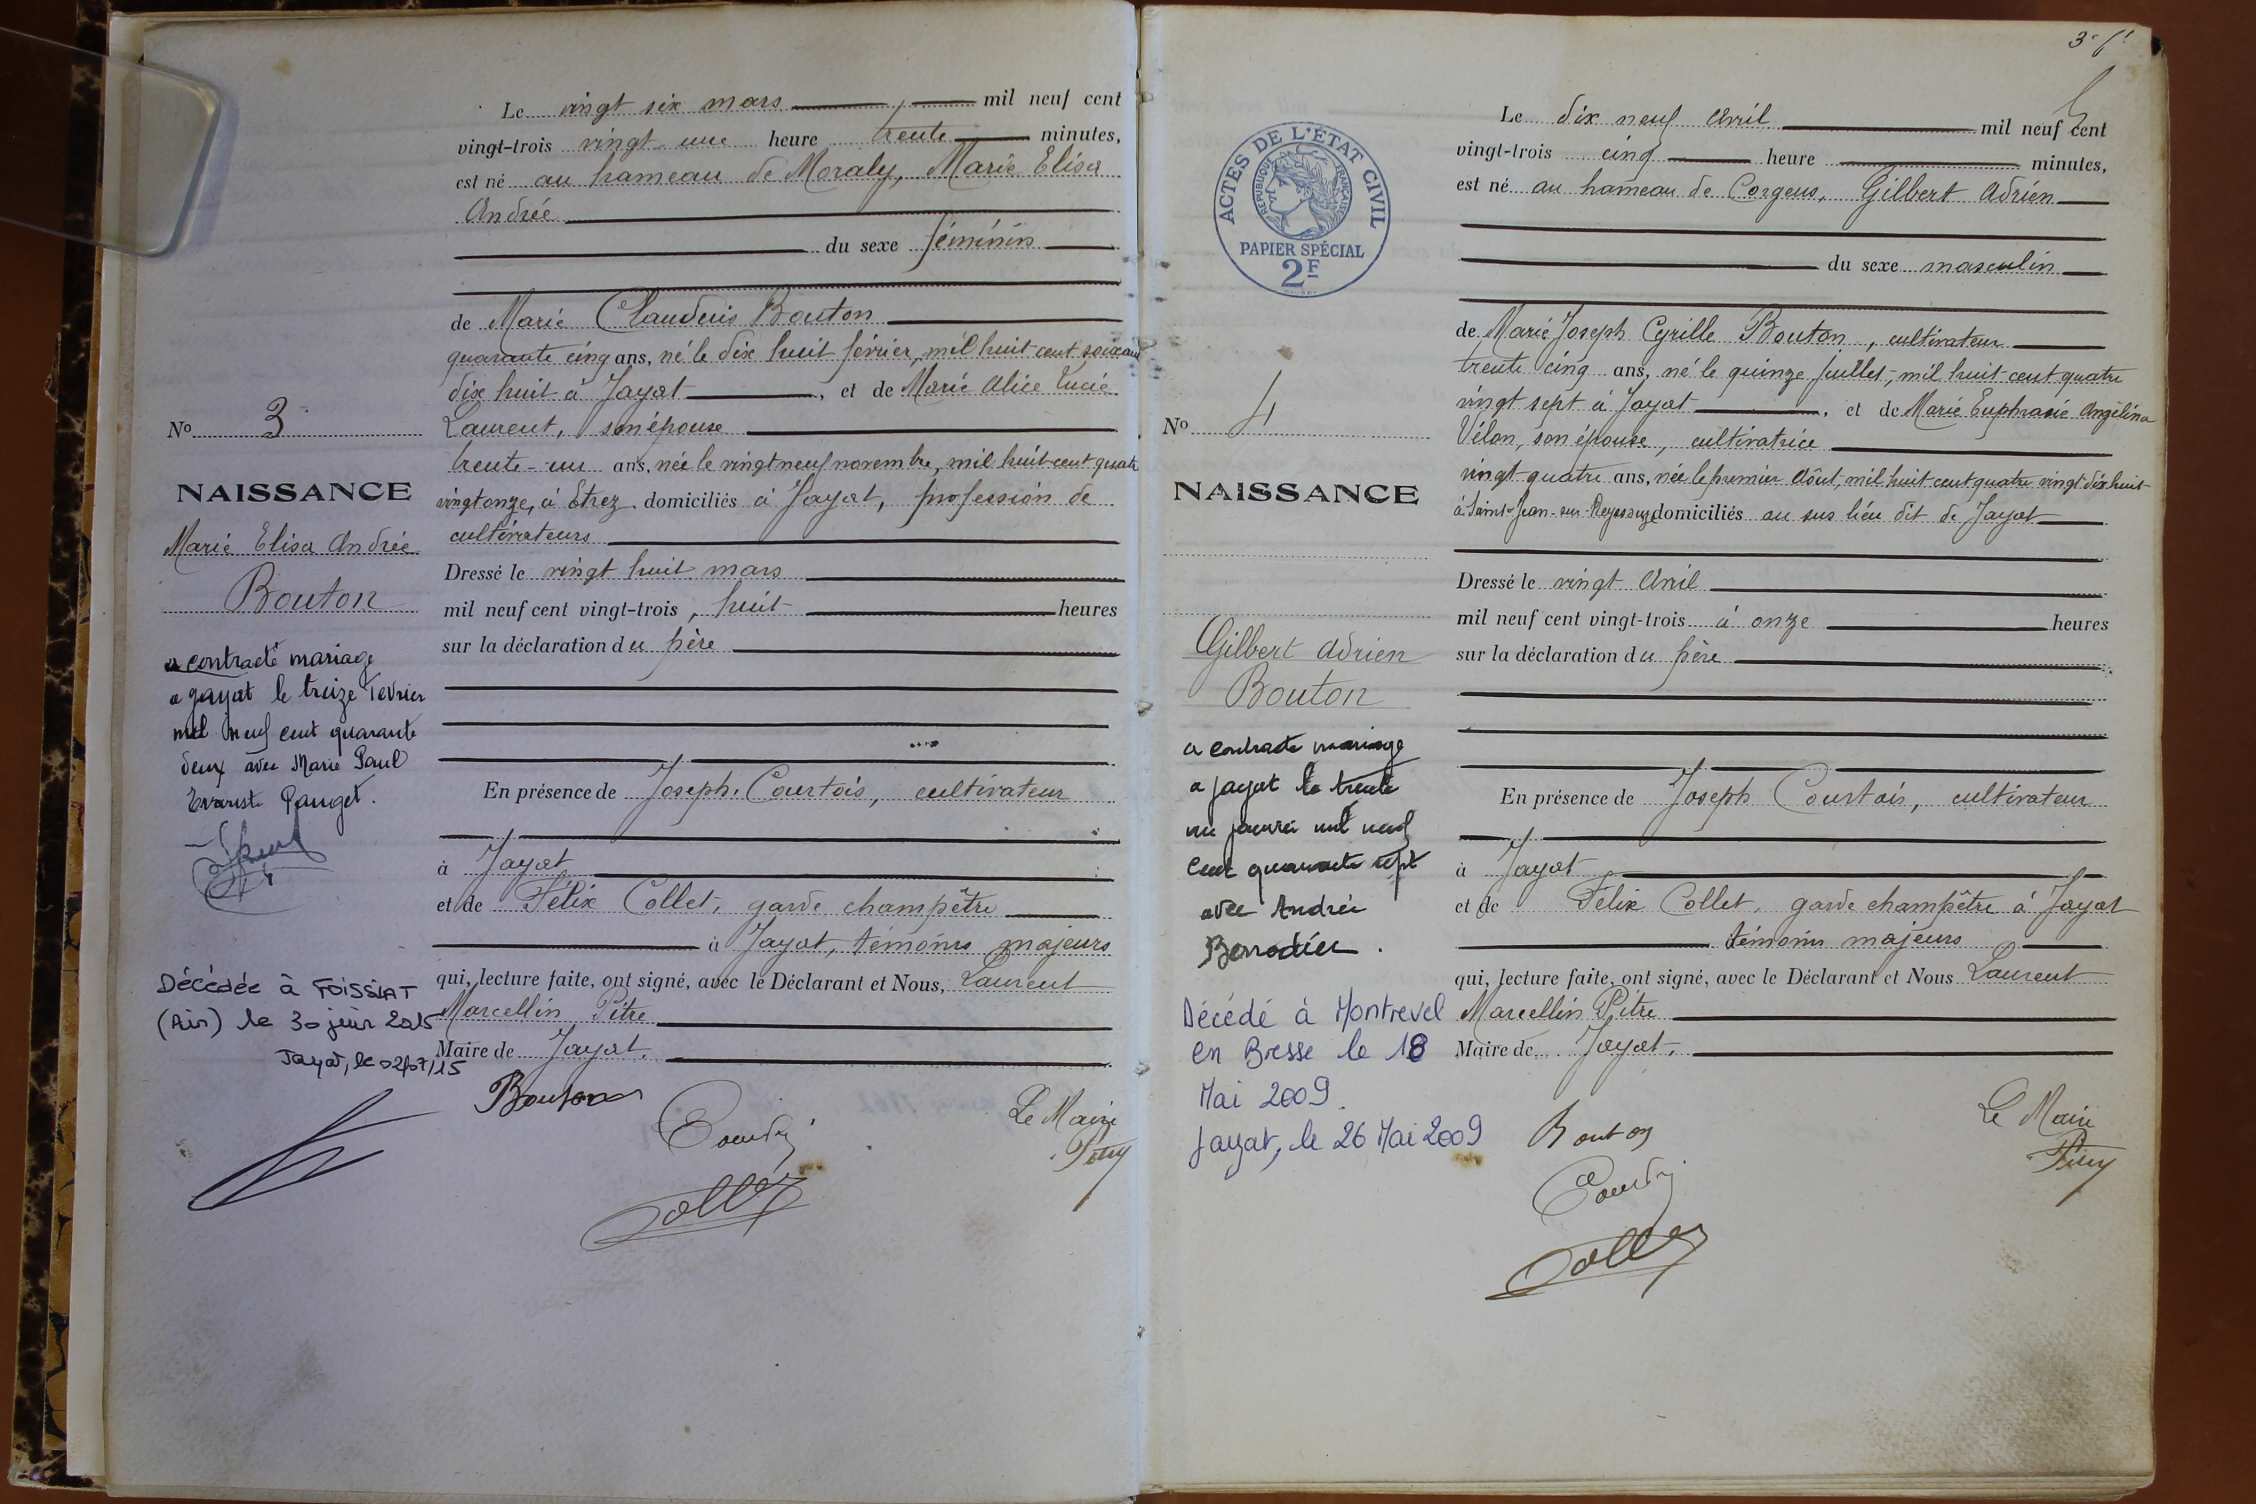 Le vingt six mars mil neuf cent
vingt-trois vingt une heure trente minutes,
est né au hameau de Moraly, Marie Elisa
Andrée
du sexe féminin
de Marie Claudius Bouton
quarante cinq ans, né le dix huit février, mil huit cent soixante
dix huit à Jayat, et de Marie Alice Lucie
Laurent, son épouse
trente-un ans, née le vingt neuf novembre, mil huit cent quatre
vingt onze, à Etrez domiciliés à Jayat, profession de
cultivateurs
Dressé le vingt huit mars
mil neuf cent vingt-trois, huit heures
sur la déclaration du père
En présence de Joseph Courtois, cultivateur
à Jayat
et de Félix Collet, garde champêtre
à Jayat, témoins majeurs
qui, lecture faite, ont signé, avec le Déclarant et Nous, Laurent
Marcellin Pitre
Maire de Jayat.
Bouton
Le Maire
No 3
NAISSANCE
Marie Elisa Andrée
Bouton
a contracté mariage
a Jayat le treize Février
mil neuf cent quarante
deux avec Marie Paul
Evariste Pauget.
Décédée à FOISSIAT
(Ain) le 30 juin 2015
Jayat, le 02/07/15
3e ft
Le dix neuf Avril mil neuf cent
vingt-trois cinq heure minutes,
est né au hameau de Corgeus, Gilbert Adrien
du sexe masculin
de Marie Joseph Cyrille Bouton, cultivateur
trente cinq ans, né le quinze Juillet, mil huit cent quatre
vingt sept à Jayat, et de Marie Euphrasie Angélina
Vélon, son épouse, cultivatrice
vingt quatre ans, née le premier Août, mil huit cent quatre vingt dix huit
à Saint-Jean-sur-Reyssouze domiciliés au sus lieu dit de Jayat
Dressé le vingt Avril
mil neuf cent vingt-trois à onze heures
sur la déclaration du père
En présence de Joseph Courtois, cultivateur
à Jayat
et de Félix Collet, garde champêtre à Jayat
témoins majeurs
qui, lecture faite, ont signé, avec le Déclarant et Nous Laurent
Marcellin Pitre
Maire de Jayat.
Bouton
Le Maire
ACTES DE L'ÉTAT CIVIL
RÉPUBLIQUE FRANÇAISE
PAPIER SPÉCIAL
2F
No 4
NAISSANCE
Gilbert Adrien
Bouton
a contracté mariage
a Jayat le trente
un janvier mil neuf
cent quarante sept
avec Andrée
Berrodier.
Décédé à Montrevel
en Bresse le 18
Mai 2009.
Jayat, le 26 Mai 2009